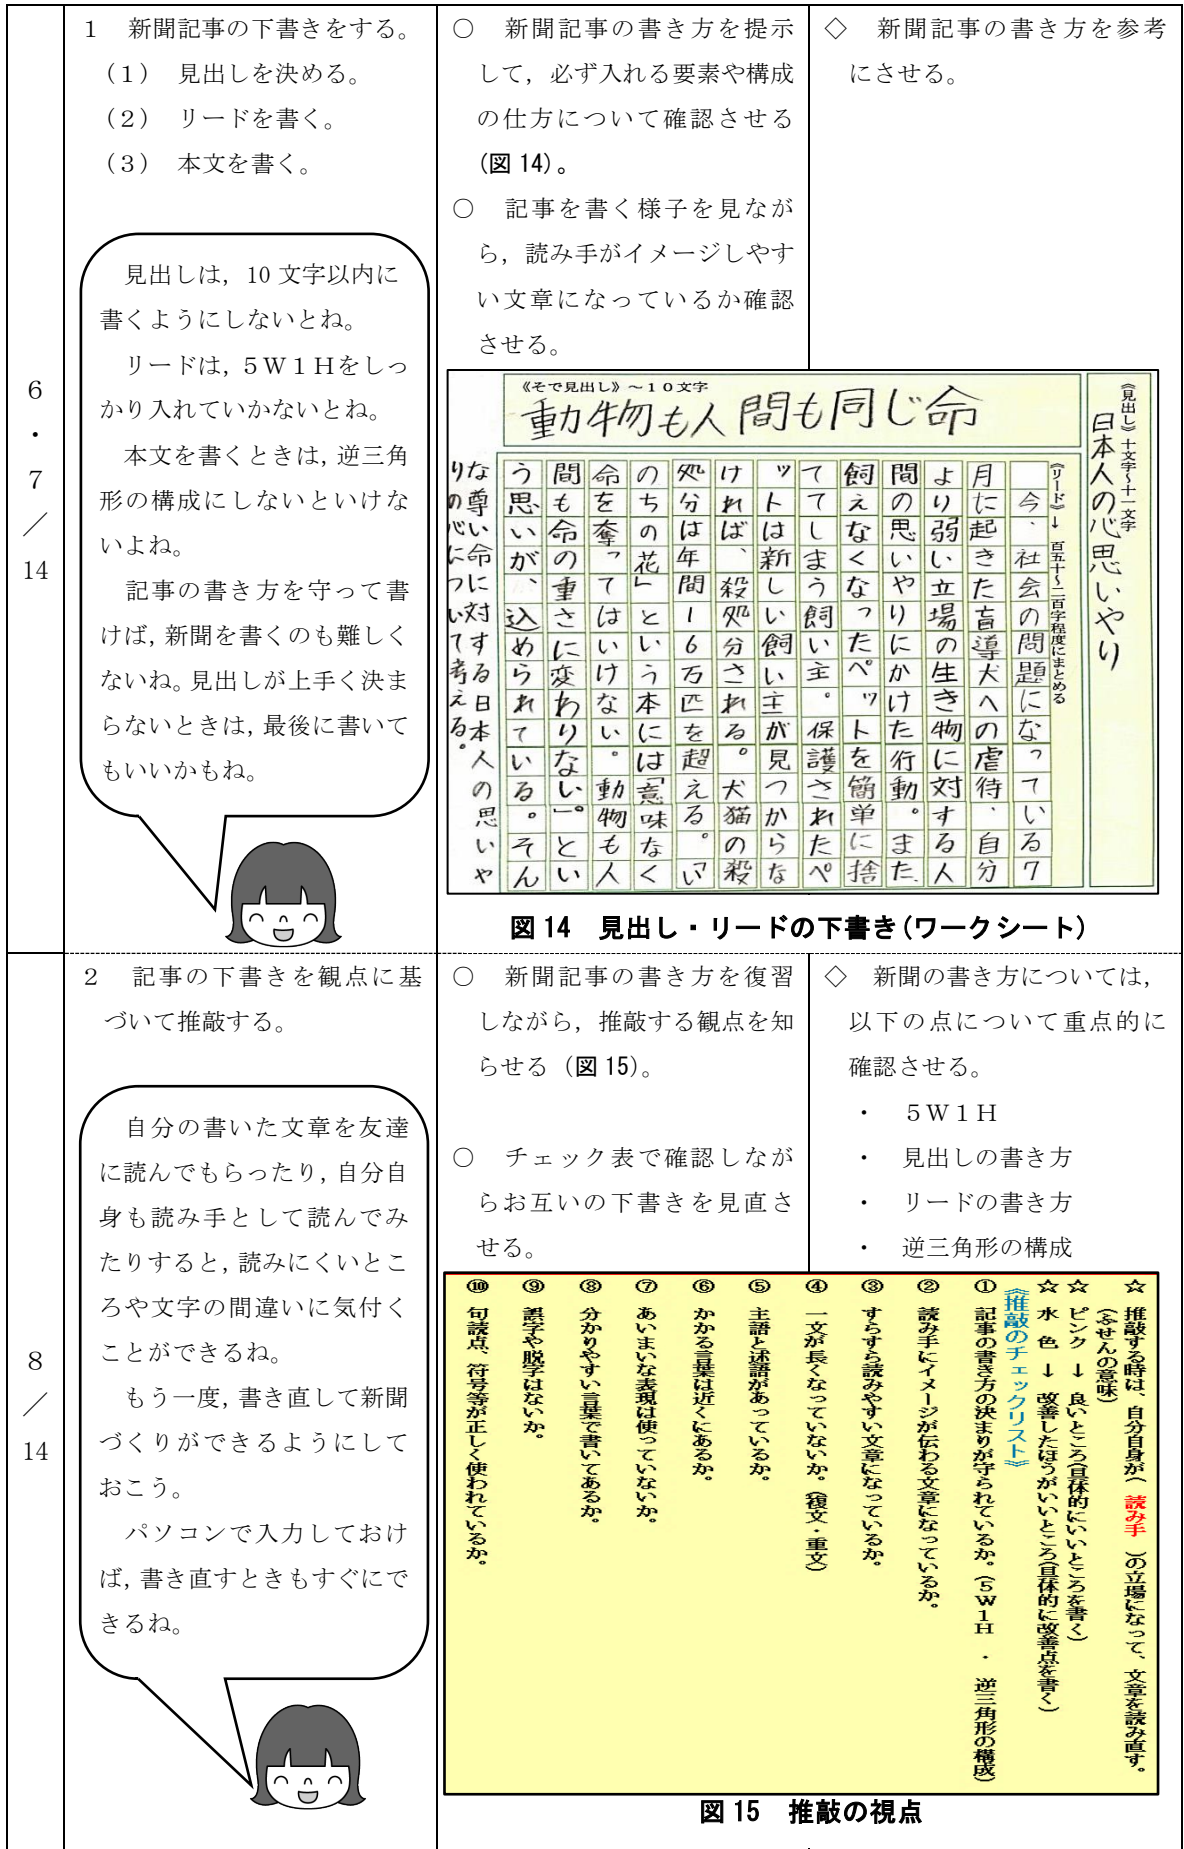 6・7／14
1　新聞記事の下書きをする。
(1)　見出しを決める。
(2)　リードを書く。
(3)　本文を書く。
見出しは，10文字以内に
書くようにしないとね。
リードは，5W1Hをしっ
かり入れていかないとね。
本文を書くときは，逆三角
形の構成にしないといけな
いよね。
記事の書き方を守って書
けば，新聞を書くのも難しく
ないね。見出しが上手く決ま
らないときは，最後に書いて
もいいかもね。
○　新聞記事の書き方を提示
して，必ず入れる要素や構成
の仕方について確認させる
(図14)。
○　記事を書く様子を見なが
ら，読み手がイメージしやす
い文章になっているか確認
させる。
◇　新聞記事の書き方を参考
にさせる。
《見出し》十文字～十一文字
日本人の心思いやり
《そで見出し》～１０文字
動物も人間も同じ命
《リード》→　百五十～二百字程度にまとめる
今、社会の問題になっている7
月に起きた盲導犬への虐待、自分
より弱い立場の生き物に対する人
間の思いやりにかけた行動。また
飼えなくなったペットを簡単に捨
ててしまう飼い主。保護されたペ
ットは新しい飼い主が見つからな
ければ、殺処分される。犬猫の殺
処分は年間16万匹を超える。「い
のちの花」という本には「意味なく
命を奪ってはいけない。動物も人
間も命の重さに変わりない」。とい
う思いが、込められている。そん
な尊い命に対する日本人の思いや
りの心について考える。
図14　見出し・リードの下書き(ワークシート)
8／14
2　記事の下書きを観点に基
づいて推敲する。
自分の書いた文章を友達
に読んでもらったり，自分自
身も読み手として読んでみ
たりすると，読みにくいとこ
ろや文字の間違いに気付く
ことができるね。
もう一度，書き直して新聞
づくりができるようにして
おこう。
パソコンで入力しておけ
ば，書き直すときもすぐにで
きるね。
○　新聞記事の書き方を復習
しながら，推敲する観点を知
らせる（図15）。
○　チェック表で確認しなが
らお互いの下書きを見直さ
せる。
◇　新聞の書き方については，
以下の点について重点的に
確認させる。
・　5W1H
・　見出しの書き方
・　リードの書き方
・　逆三角形の構成
☆　推敲する時は、自分自身が（　読み手　）の立場になって、文章を読み直す。
（ふせんの意味）
☆　ピンク　→　良いところ（具体的にいいところを書く）
☆　水　色　→　改善したほうがいいところ（具体的に改善点を書く）
《推敲のチェックリスト》
①　記事の書き方の決まりが守られているか。（5W1H　・　逆三角形の構成）
②　読み手にイメージが伝わる文章になっているか。
③　すらすら読みやすい文章になっているか。
④　一文が長くなっていないか。（複文・重文）
⑤　主語と述語があっているか。
⑥　かかる言葉は近くにあるか。
⑦　あいまいな表現は使っていないか。
⑧　分かりやすい言葉で書いてあるか。
⑨　誤字や脱字はないか。
⑩　句読点、符号等が正しく使われているか。
図15　推敲の視点